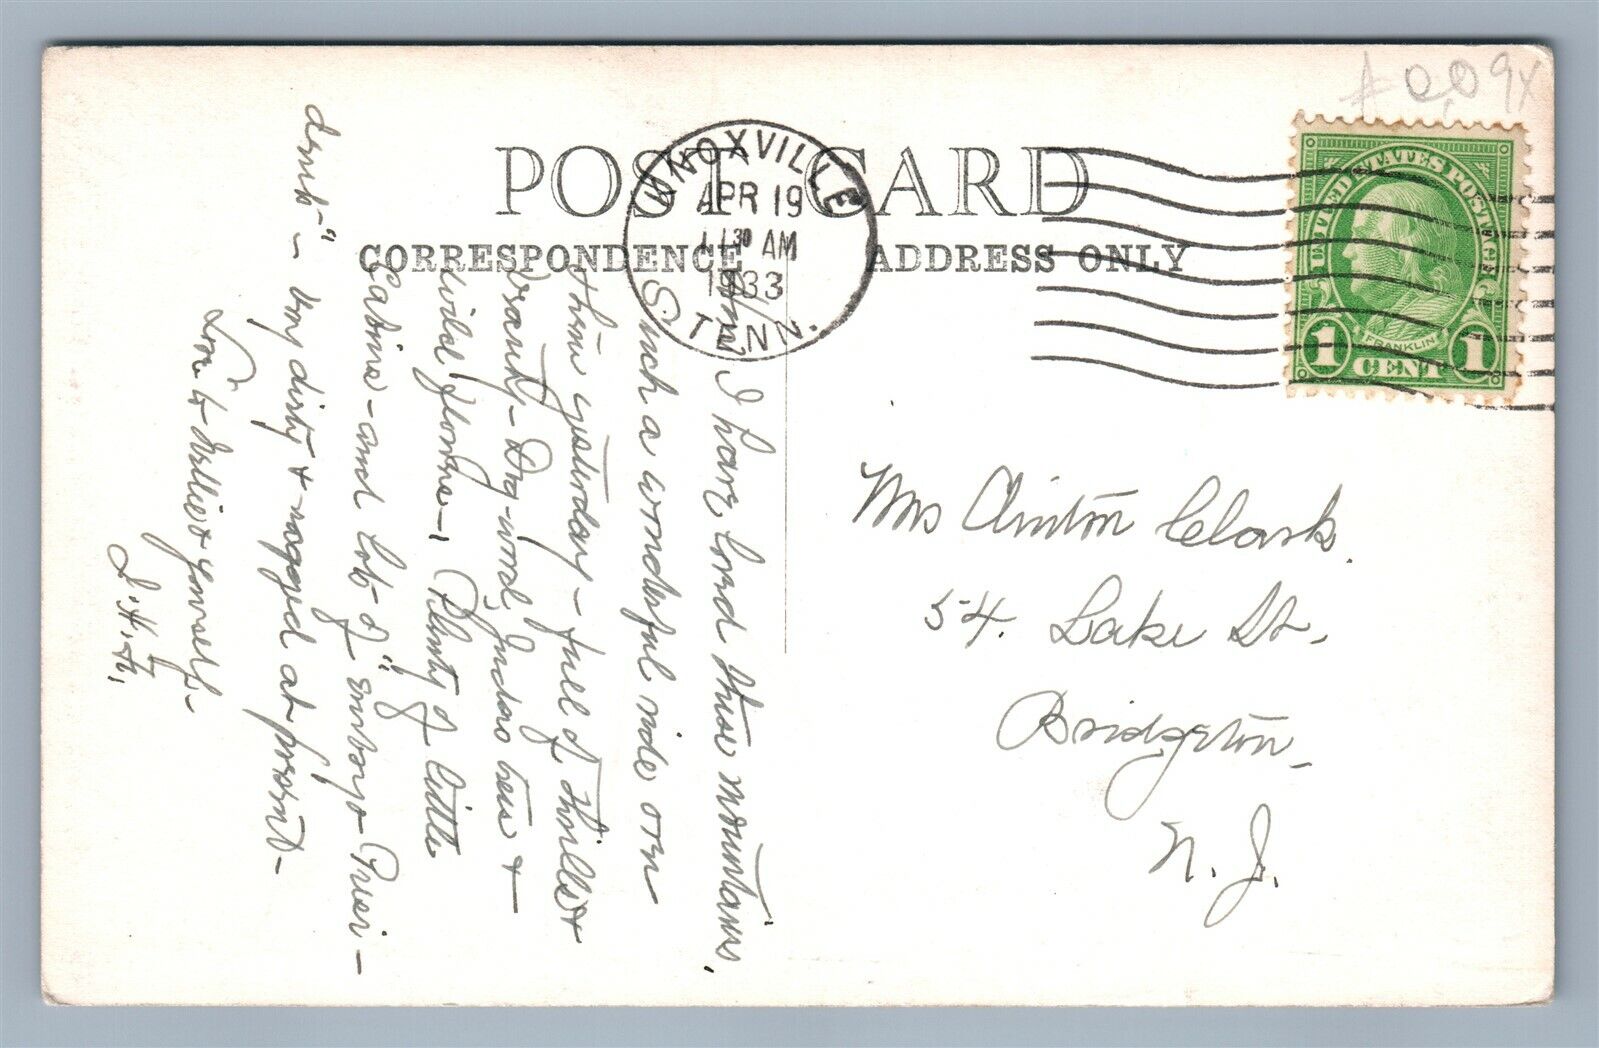 POST CARD
CORRESPONDENCE
ADDRESS ONLY
KNOXVILLE
APR 19
11 30 AM
1933
TENN.
UNITED STATES POSTAGE
FRANKLIN
1 CENT 1
Mrs Clinton Clark.
54. Lake St.
Bridgeton,
N. J.
I have loved these mountains,
Such a wonderful ride on
them yesterday – full of thrills &
beauty – Dog-wood, Judas tree &
wild flowers – Plenty of little
Cabins – and lots of "embryo Presi –
dents" – Very dirty & ragged at present –
Love to Nellie & yourself –